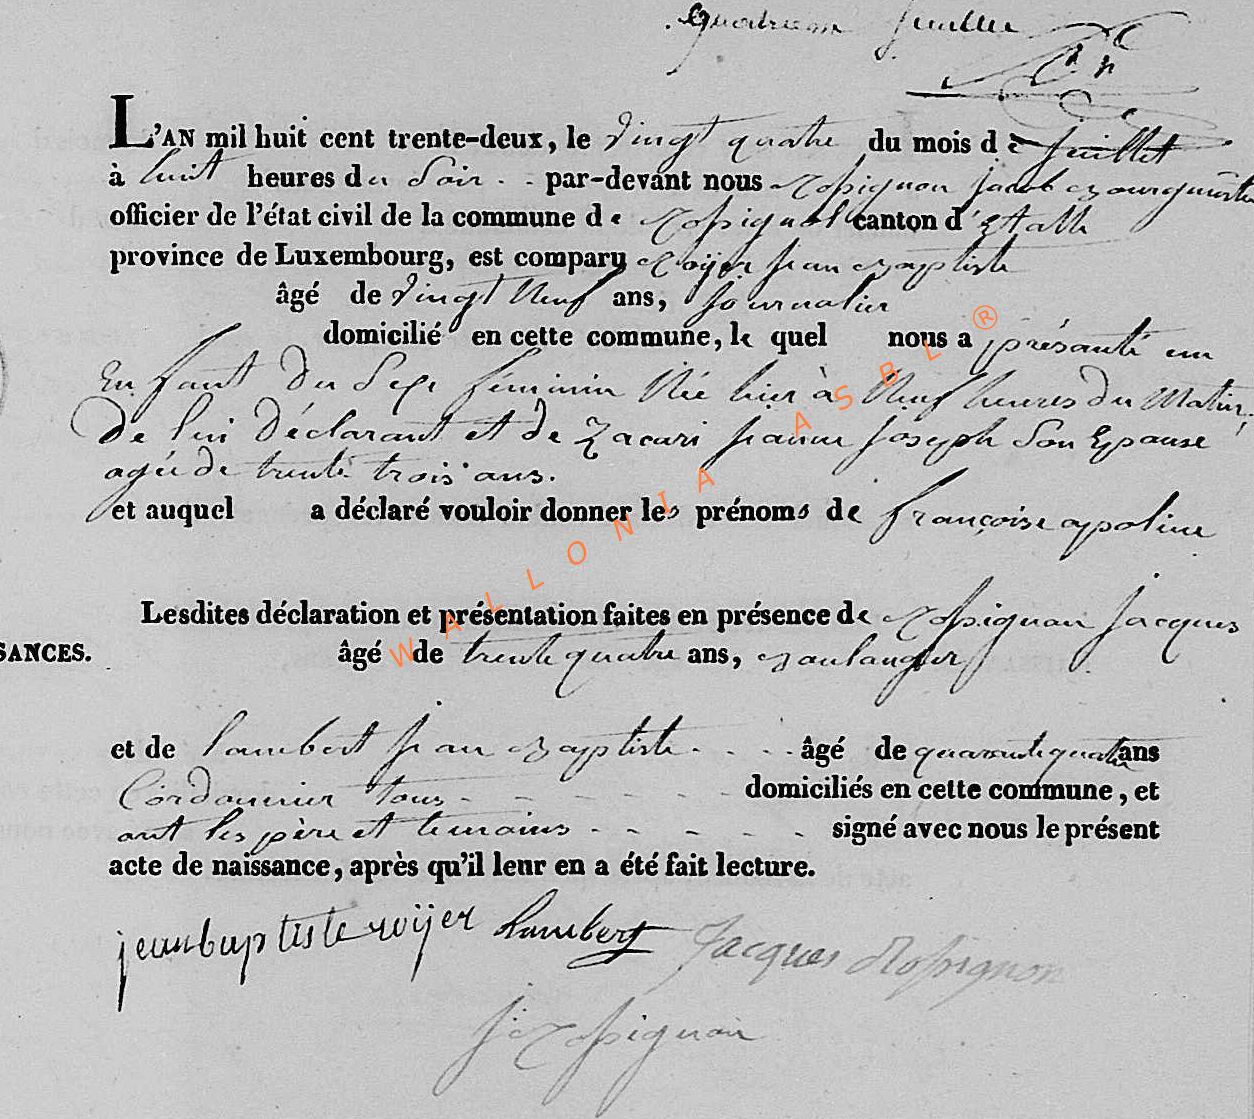 quatrième feuillet
L'AN mil huit cent trente-deux, le vingt quatre du mois de juillet
à huit heures du soir par-devant nous Rossignon jacob Bourgmestre
officier de l'état civil de la commune de Rossignol canton d'Etalle
province de Luxembourg, est comparu Roijer jean Baptiste
âgé de vingt neuf ans, journalier
domicilié en cette commune, le quel nous a présanté un
Enfant du sexe féminin Née hier à Neuf heures du matin,
De lui Déclarant et de Zacari jeanne joseph son Epouse
agée de trente trois ans.
et auquel a déclaré vouloir donner les prénoms de françoise apoline
Lesdites déclaration et présentation faites en présence de Rossignon jacques
SANCES. âgé de trente quatre ans, Boulanger
et de Lambert jean Baptiste âgé de quarante quatre ans
Cordonnier tous domiciliés en cette commune, et
ont les père et temoins signé avec nous le présent
acte de naissance, après qu'il leur en a été fait lecture.
jean baptiste roijer Lambert Jacques Rossignon
j Rossignon
WALLONIA ASBL ®